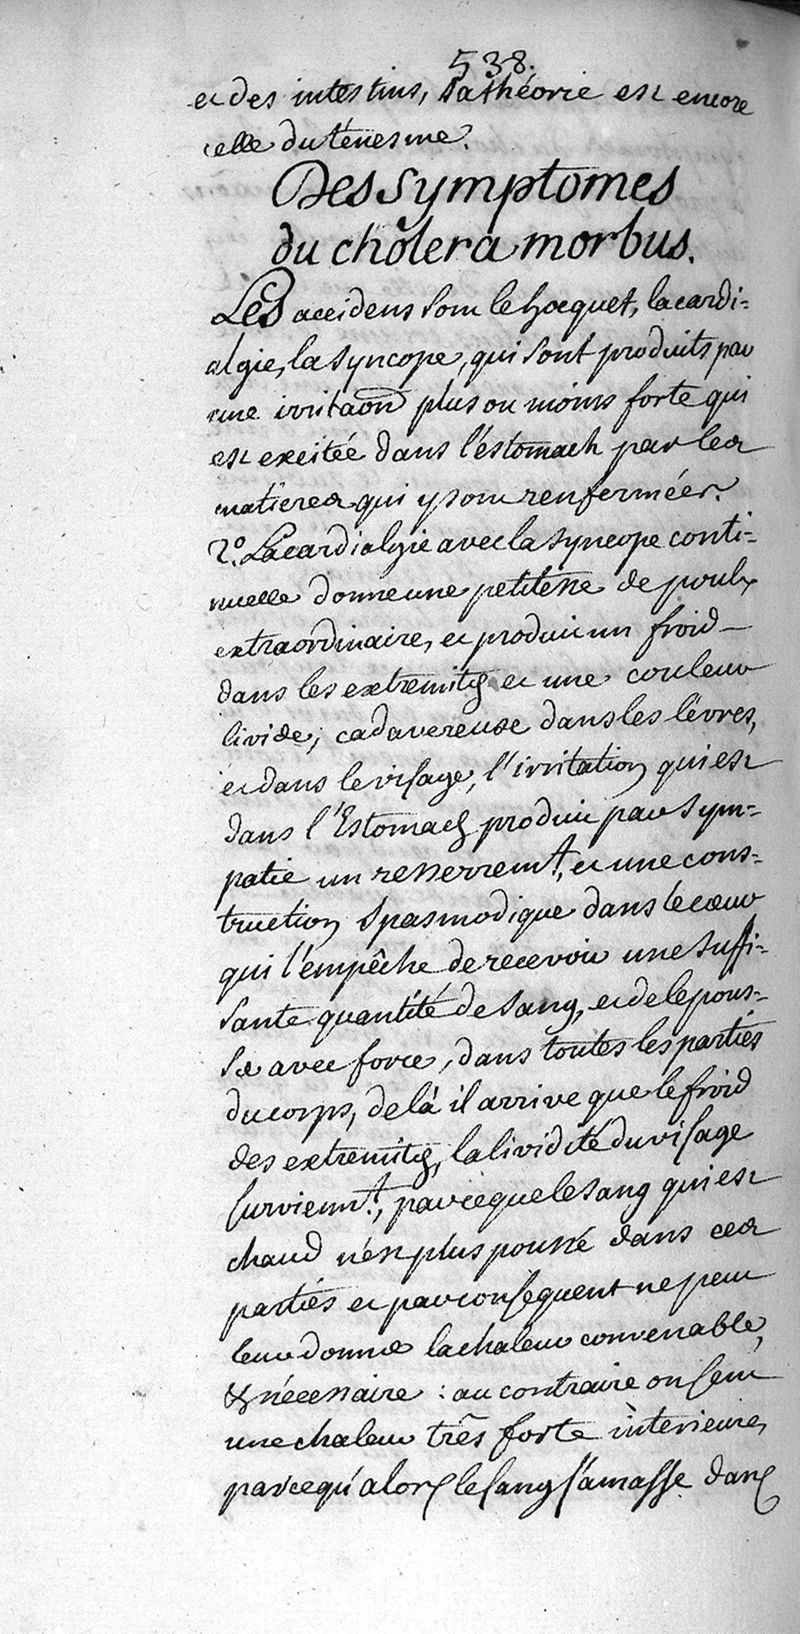 538.
et des intestins, sa théorie est encore
celle du tenesme.
Des Symptomes
du choléra morbus.
Les accidens sont le hocquet, la cardi=
algie, la syncope, qui sont produits par
une irritaon plus ou moins forte qui
est excitée dans l'éstomach par les
matieres qui y sont renfermées.
2.º La cardialgie avec la syncope conti=
nuelle donne une petitesse de pouls
extraordinaire, et produit un froid
dans les extremités et une couleur
livide, cadavereuse dans les lévres,
et dans le visage, l'irritation qui est
dans l'Estomach produit par sym=
patie un resserremt, et une cons=
truction spasmodique dans le cœur
qui l'empêche de recevoir une suffi=
sante quantité de sang, et de le pous=
ser avec force, dans toutes les parties
du corps, de là il arrive que le froid
des extremités, la lividité du visage
surviennt, parceque le sang qui est
chaud n'est plus poussé dans ces
parties et par conséquent ne peut
leur donner la chaleur convenable,
& nécessaire : au contraire on sent
une chaleur très forte interieure,
parcequ'alors le sang s'amasse dans